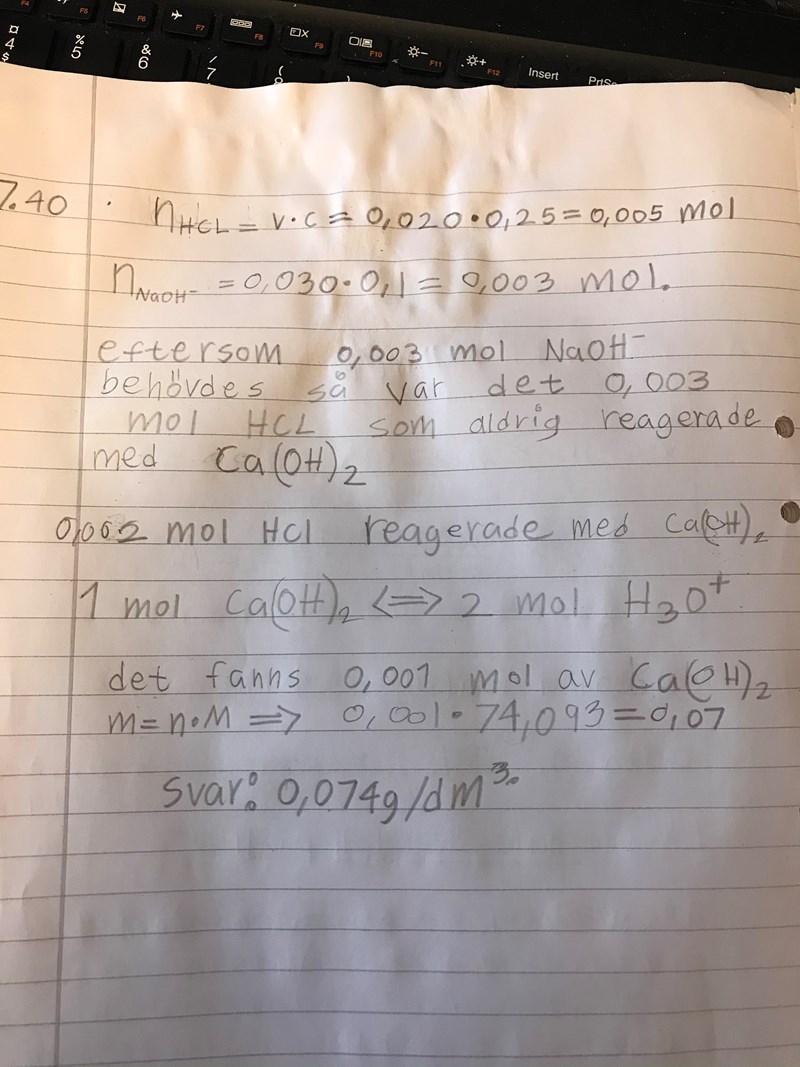 F5 F6 F7 F8 F9 F10 F11 F12 Insert
¤ 4 $ % 5 & 6 / 7 (
7.40 · nHCL = V·C = 0,020·0,25 = 0,005 mol
nNaOH⁻ = 0,030·0,1 = 0,003 mol.
eftersom 0,003 mol NaOH⁻
behövdes så var det 0,003
mol HCL som aldrig reagerade
med Ca(OH)₂
0,002 mol HCl reagerade med Ca(OH)₂
1 mol Ca(OH)₂ <=> 2 mol H₃O⁺
det fanns 0,001 mol av Ca(OH)₂
m=n·M => 0,001·74,093=0,07
Svar: 0,074g/dm³.